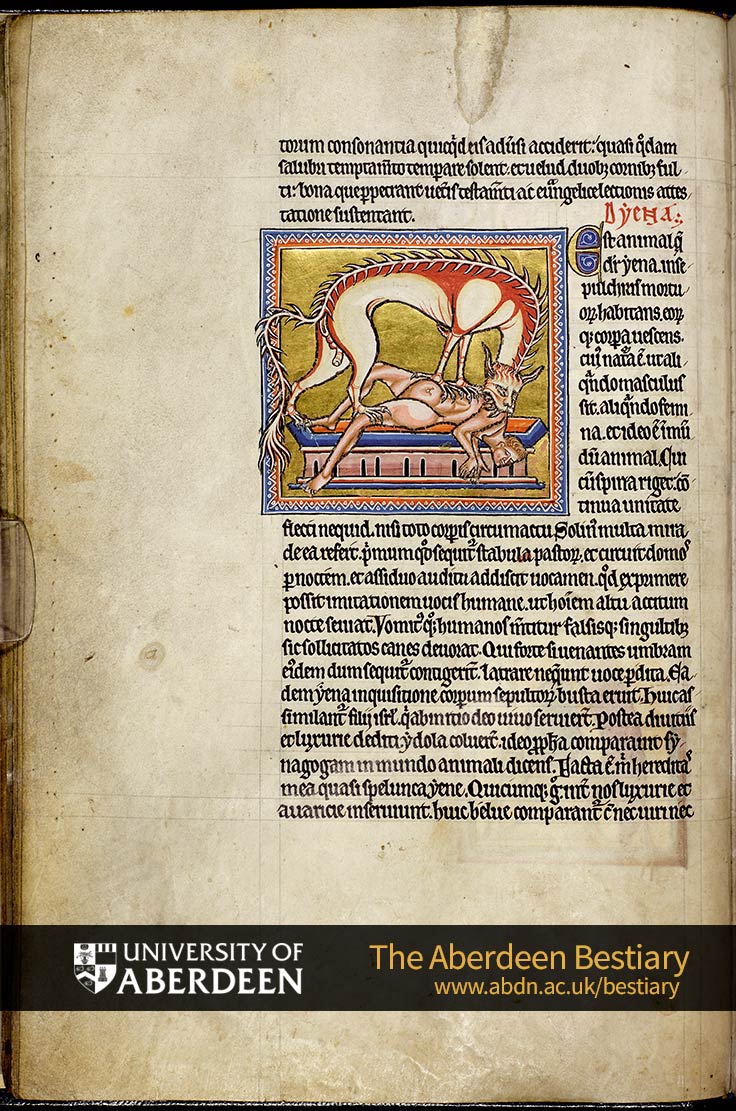 torum consonantia quicq̇d eis aduͥsi acciderit: quasi q̊dam
salubri temptam̅to temp̲are solent. et uelud duob; cornib; ful
ti: bona que p̲petrant uet̓is testam̅ti ac eu̅ngelice lectionis attes
tatione sustentant.
Dyena.
Est animal q̅
dr̅ yena. in se
pulchris mortu
oꝝ habitans. eoꝝ
q; corpa uescens.
cuiꝰ nat̓a e̅ ut ali
qn̅do masculus
sit. aliqn̅do femi
na. et ideo e̅ inmu̅
du̅ animal. Cui
cu̅ spina riget. co̅
tinua unitate
flecti nequid. nisi toto corp̲is circumactu. Solinꝰ multa mira
de ea refert. p̓mum qd̓ sequit᷑ stabula pastoꝝ. et circuit domoˢ
p̲ noctem. et assiduo auditu addiscit uocamen. qd̓ exprimere
possit imitationem uocis humane. ut hoi̅em astu accitum
nocte seuiat. Vomitꝰ q; humanos m̅titur falsisq; singultib;
sic sollicitatos canes deuorat. Qui forte si uenantes umbram
eiꝰdem dum sequit᷑ contigerint. latrare neq̅unt uoce p̲dita. Ea
dem yena inquisitione corp̲um sepultoꝝ busta eruit. Huic as
similant᷑ filii isrl̅. q̇ ab initio deo uiuo seruier̅t. Postea diuitiis
et luxurie dediti. ydola coluer̅t. ideo p̲pħa comparauit sy
nagogam inmundo animali dicens. Facta e̅ m̓ hereditaˢ
mea quasi spelunca yene. Quicumq; g̊ int̓ nos luxurie et
auaricie inseruiunt. huic belue comparant᷑ c̅ nec uiri nec
UNIVERSITY OF
ABERDEEN
The Aberdeen Bestiary
www.abdn.ac.uk/bestiary